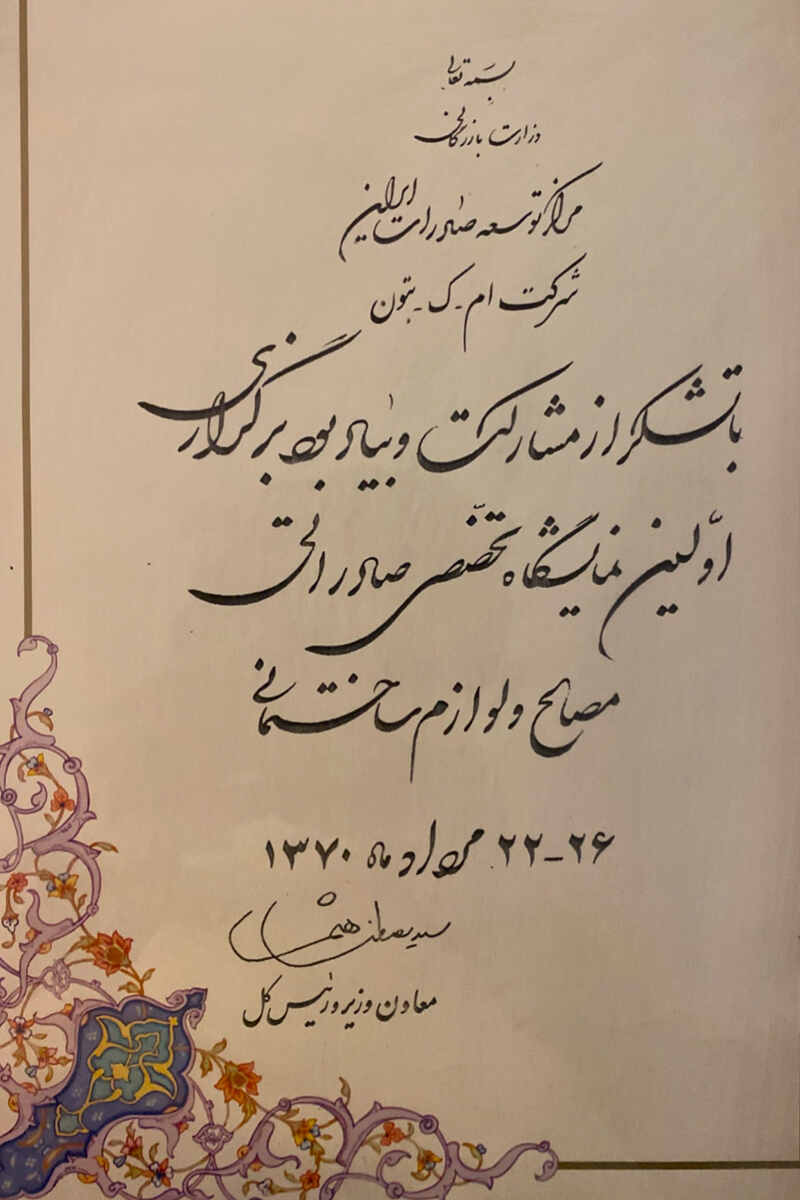 بسمه تعالی
وزارت بازرگانی
مرکز توسعه صادرات ایران
شرکت ام - ک - بتون
با تشکر از مشارکت و بیاد بود برگزاری
اوّلین نمایشگاه تخصّصی صادراتی
مصالح و لوازم ساختمانی
۲۲-۲۶ مرداد ماه ۱۳۷۰
سید مصطفی هاشمی
معاون وزیر و رئیس کل